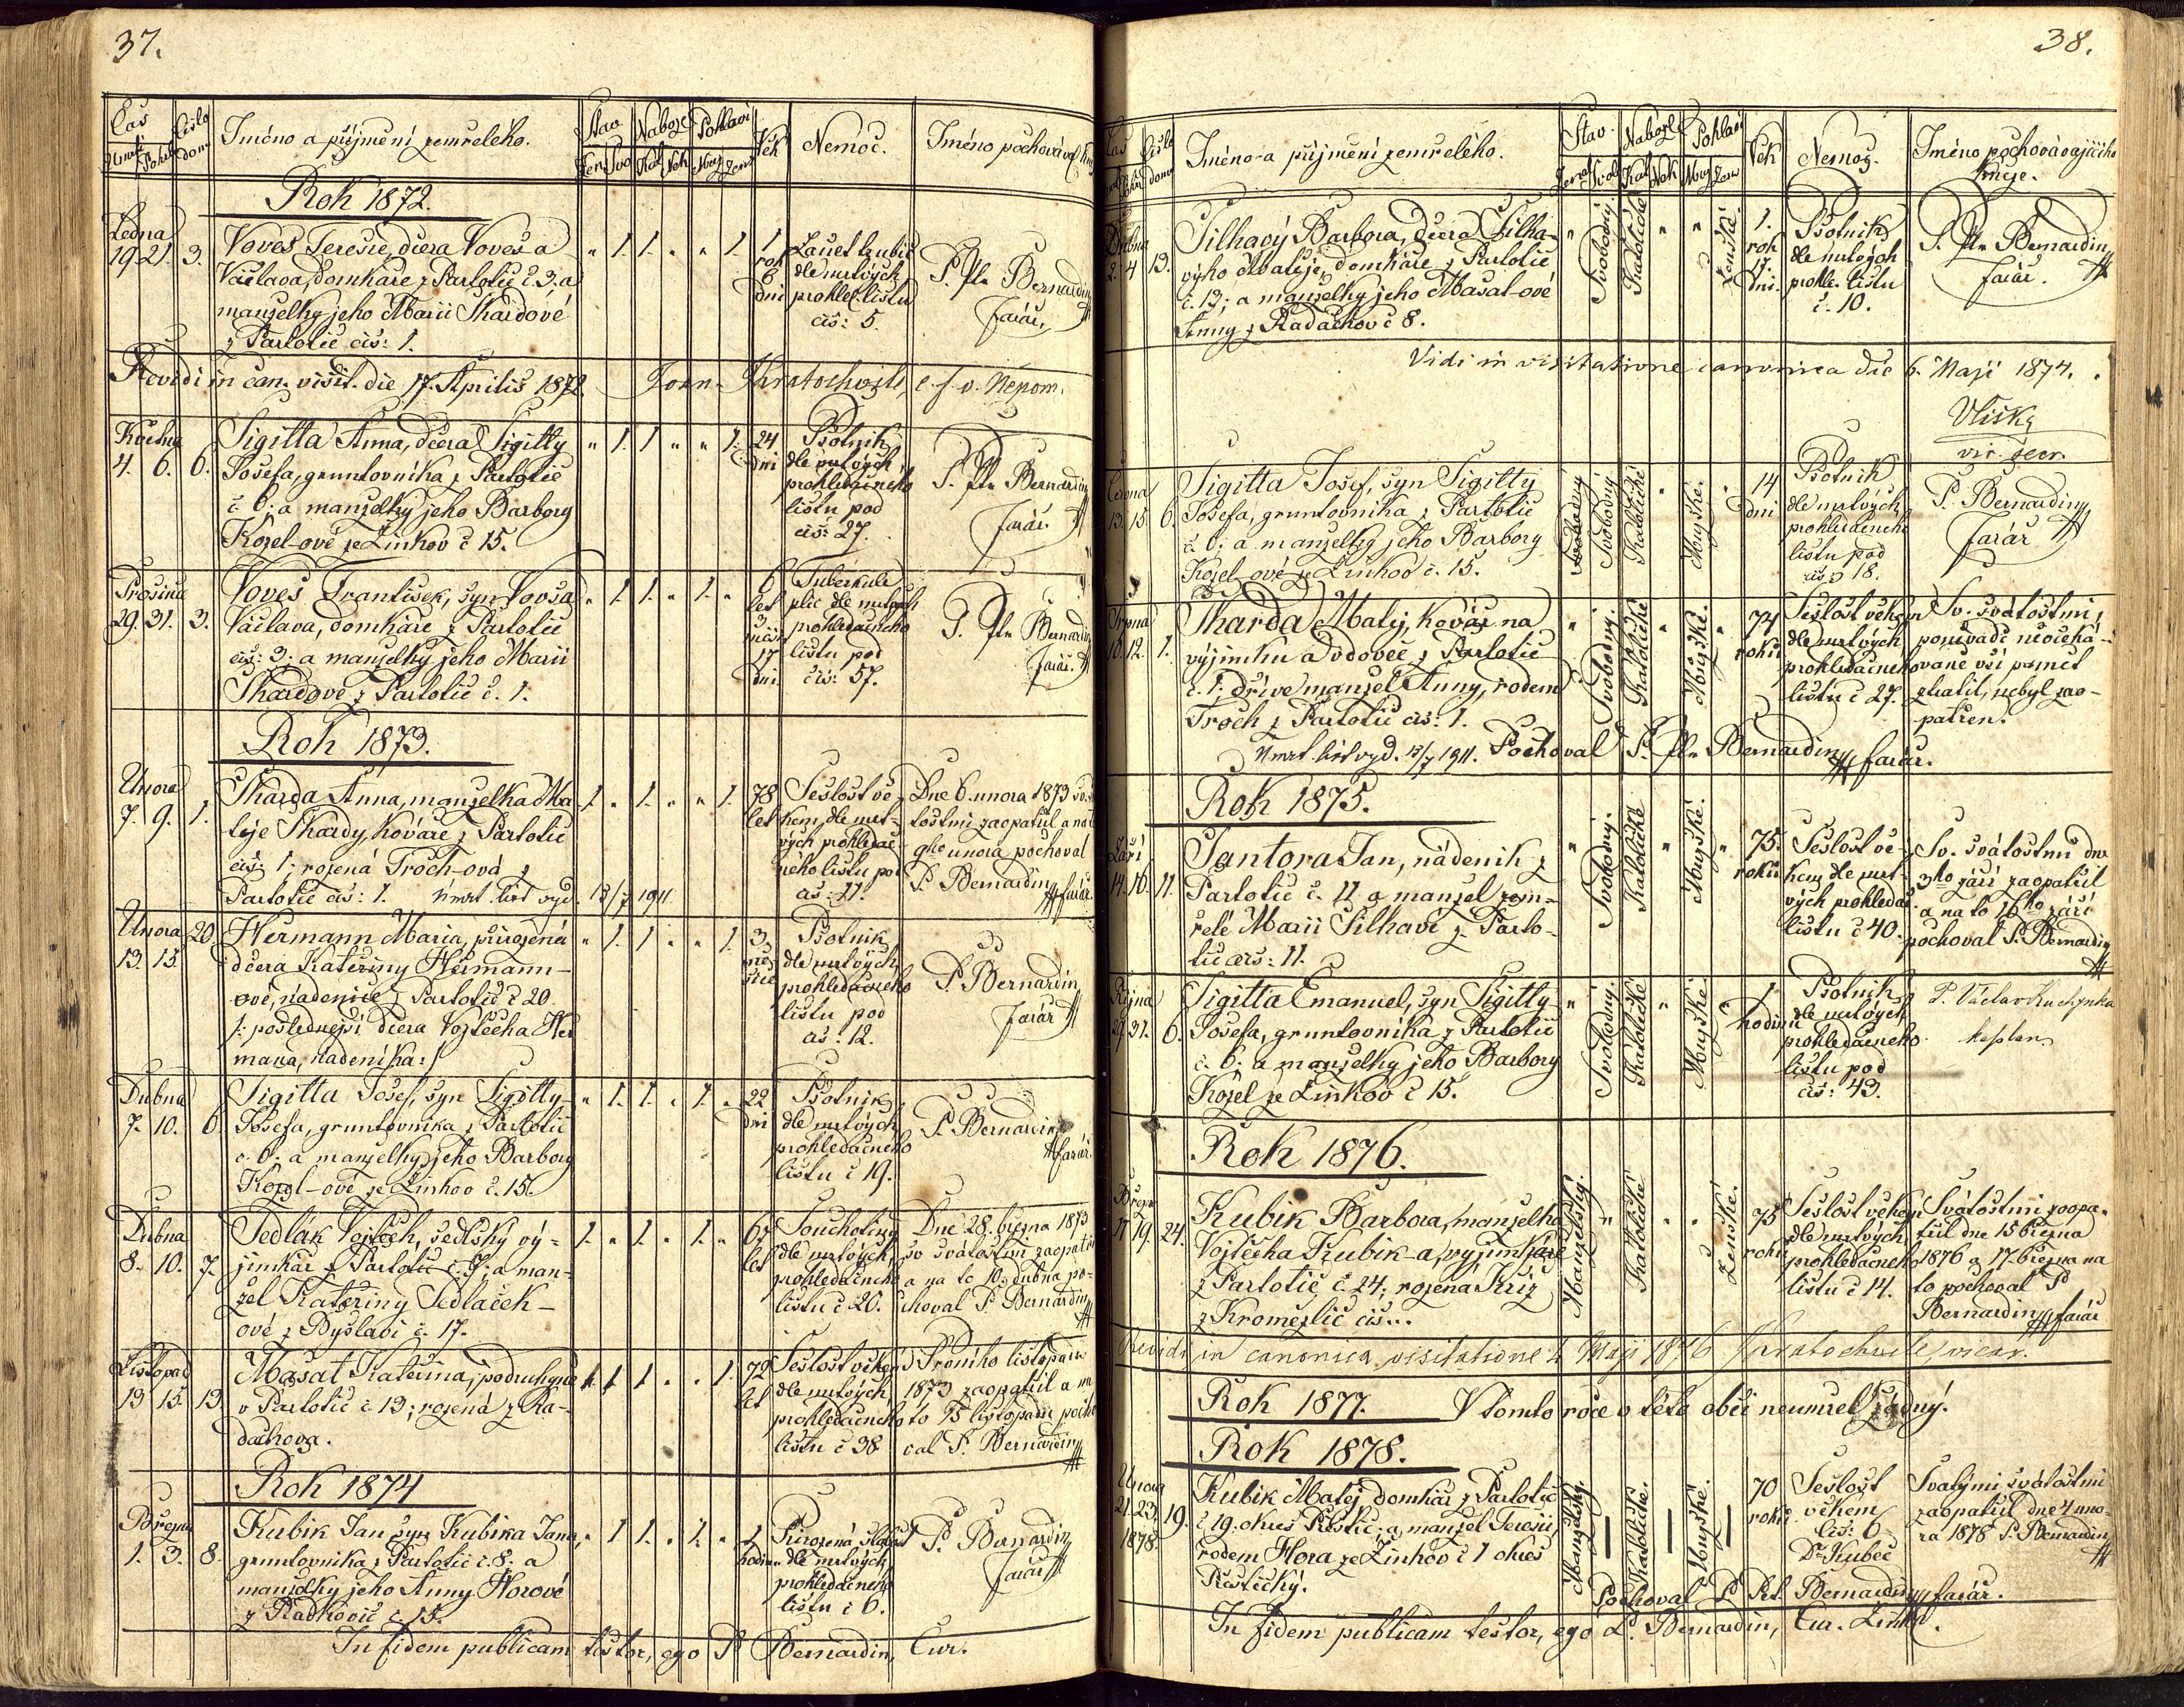 37.
Čas
Číslo domu
Jméno a příjmení zemřelého.
Stav
Nábože
Pohlaví
Věk
Nemoc.
Jméno pochovávajícího
Rok 1872.
Ledna
19. 21. 3.
Voves Teresie, dcera Voves-a
Václava, domkáře z Partotic č. 3. a
manželky jeho Marii Skardové
z Partotic čís: 1.
" 1. 1. " " 1.
1 rok 6 dni
dle mrtvých
prohled. listu
čís: 5.
P. Pln Bernardin
farář.
Revidi in can. visit. die 17. Aprilis 1872. Joan. Kratochvile, e. f. v. Nepom.
Května
4. 6. 6.
Sigitta Anna, dcera Sigitty
Josefa, gruntovníka z Partotic
č. 6; a manželky jeho Barbory
Kozel-ové ze Žinkov č 15.
" 1. 1. " " 1.
24 dni
Psotník
dle mrtvých
prohledacneho
listu pod
čís: 27.
P. Pln Bernardin
farář.
Prosince
29. 31. 3.
Voves František, syn Vovsa
Václava, domkáře z Partotic
čís: 3; a manželky jeho Marii
Skardové z Partotic č. 1.
" 1. 1. " 1. "
6 let 3 měsíce 17 dni
Tuberkule
plic dle mrtvých
prohledacneho
listu pod
čís: 57.
P. Pln Bernardin
farář.
Rok 1873.
Unora
7. 9. 1.
Skarda Anna, manželka Ma
těje Skardy, kováře z Partotic
čís: 1; rozená Troch-ová z
Partotic čís: 1. úmrt. list vyd. 13/7 1911
1. " 1. " " 1.
78 let
Sešlost vě-
kem, dle mrt-
vých prohledac-
neho listu pod
čís: 11.
Dne 6. unora 1873 sv. svá
tostmi zaopatřil a na to
9ho unora pochoval
P. Bernardin farář.
Unora 20
13. 15.
Hermann Maria, přirozená
dcera Kateřiny Hermann-
ové, nádenice z Partotic č 20.
/: poslednejší dcera Vojtěcha Her
mana, nádeníka:/
" 1. 1. " " 1.
3 měsíce
Psotník
dle mrtvých
prohledacneho
listu pod
čís: 12.
P. Bernardin
farář
Dubna
7. 10. 6.
Sigitta Josef, syn Sigitty-
Josefa, gruntovníka z Partotic
č. 6; a manželky jeho Barbory
Kozel-ové ze Žinkov č. 15.
" 1. 1. " 1. "
22 dni
Psotník
dle mrtvých
prohledacneho
listu č 19.
P. Bernardin
farář.
Dubna
8. 10. 7.
Sedlák Vojtěch, sedlský vý-
jimkář z Partotic č. 7; a man-
žel Kateřiny Sedláček-
ové z Byslavi č. 17.
1. " 1. " 1. "
let
Souchotiny
dle mrtvých
prohledacneho
listu č 20.
Dne 28. března 1873
sv. svátostmi zaopatřil
a na to 10. dubna po-
choval P. Bernardin
Listopad
13 15. 13
Masat Kateřina, podruhyně
v Partotic č 13; rozená z Ra-
dachova.
72 let
Sešlost věkem
dle mrtvých
prohledacneho
listu č 38
Prvního listopadu
1873 zaopatřil a na
to 15 listopadu pocho
val P. Bernardin
Rok 1874
Března
1. 3. 8.
Kubik Jan syn Kubika Jana,
gruntovníka z Partotic č. 8. a
manželky jeho Anny Horové
z Radkovic č. 15.
" 1. 1. " 1. "
hodinu
Přirozená slabost
dle mrtvých
prohledacneho
listu č 6.
P. Bernardin
farář
In fidem publicam testor, ego P. Bernardin, Cur.
38.
Číslo domu
Jméno a příjmení zemřelého.
Stav.
Nábože
Pohlaví
Věk
Nemoc.
Jméno pochovávajícího
kněze.
Dubna
2. 4 13.
Silhavý Barbora, dcera Silha-
výho Matěje, domkáře z Partotic
č. 13; a manželky jeho Masat-ové
Anny z Radachov č 8.
Svobodný.
Katolické
Ženské.
1. rok 17 dni.
Psotník
dle mrtvých
prohle. listu
č. 10.
P. Pln Bernardin
farář.
Vidi in visitatione canonica die 6. Maji 1874.
Vlisky
vic. secr.
Června
13. 15. 6.
Sigitta Josef, syn Sigitty
Josefa, gruntovníka z Partotic
č. 6; a manželky jeho Barbory
Kozel-ové ze Žinkov č. 15.
Svobodný
Katolické
Mužské.
14 dni
Psotník
dle mrtvých
prohledacneho
listu pod
čís 18.
P. Bernardin
farář
Srpna
10. 12. 1.
Skarda Matěj, kovář na
výjimku a vdovec z Partotic
č. 1; dříve manžel Anny, rodem
Troch z Partotic čís: 1.
Úmrt. list vyd. 13/7 1911. Pochoval P. Pln Bernardin farář.
Svobodný.
Katolické
Mužské.
74 roků
Sešlost věkem
dle mrtvých
prohledacneho
listu č 27.
Sv. svátostmi,
poněvadč neočeká-
vaně vší pamět
ztratil, nebyl zao-
patřen.
Rok 1875.
Září
14. 16. 11.
Santora Jan, nádeník z
Partotic č. 11 a manžel zem-
řelé Marii Silhavé z Parto-
tic čís: 11.
Svobodný.
Katolické
Mužské.
75. roků
Sešlost vě-
kem dle mrt-
vých prohledac.
listu č 40.
Sv. svátostmi dne
3ho září zaopatřil
a na to 16ho září
pochoval P. Bernardin
Října
29. 31. 6.
Sigitta Emanuel, syn Sigitty
Josefa, gruntovníka z Partotic
č. 6; a manželky jeho Barbory
Kozel ze Žinkov č 15.
Svobodný.
Katolické
Mužské
1 hodinu
Psotník
dle mrtvých
prohledacneho
listu pod
čís: 43.
P. Václav Kuchynka
kaplan
Rok 1876.
Března
17 19. 24.
Kubik Barbora, manželka
Vojtěcha Kubik-a, vyjimkáře
z Partotic, č. 24; rozená Kříž
z Kromezlic čís...
Manželský.
Katolické
Ženské.
75 roků
Sešlost věkem
dle mrtvých
prohledacneho
listu č 14.
Svátostmi zaopa-
třil dne 15 března
1876 a 17. března na
to pochoval P.
Bernardin farář
Revidi in canonica visitatione 4 Maji 1876 Kratochvile, vicar.
Rok 1877. V tomto roce v této obci neumřel žádný.
Rok 1878.
Unora
21. 23. 19.
1878.
Kubik Matěj domkář z Partotic
č 19. okres Přestic; a manžel Teresii,
rodem Hora ze Žinkov č 1 okres
Přestický.
Manželský.
Katolické.
Mužské.
70 roků
Sešlost
věkem
čís: 6
Dr Kubec
Svatými svátostmi
zaopatřil dne 4 uno-
ra 1878 P. Bernardin
Pochoval P. Pet. Bernardin farář.
In fidem publicam testor, ego P. Bernardin, Cur. Žinkov.